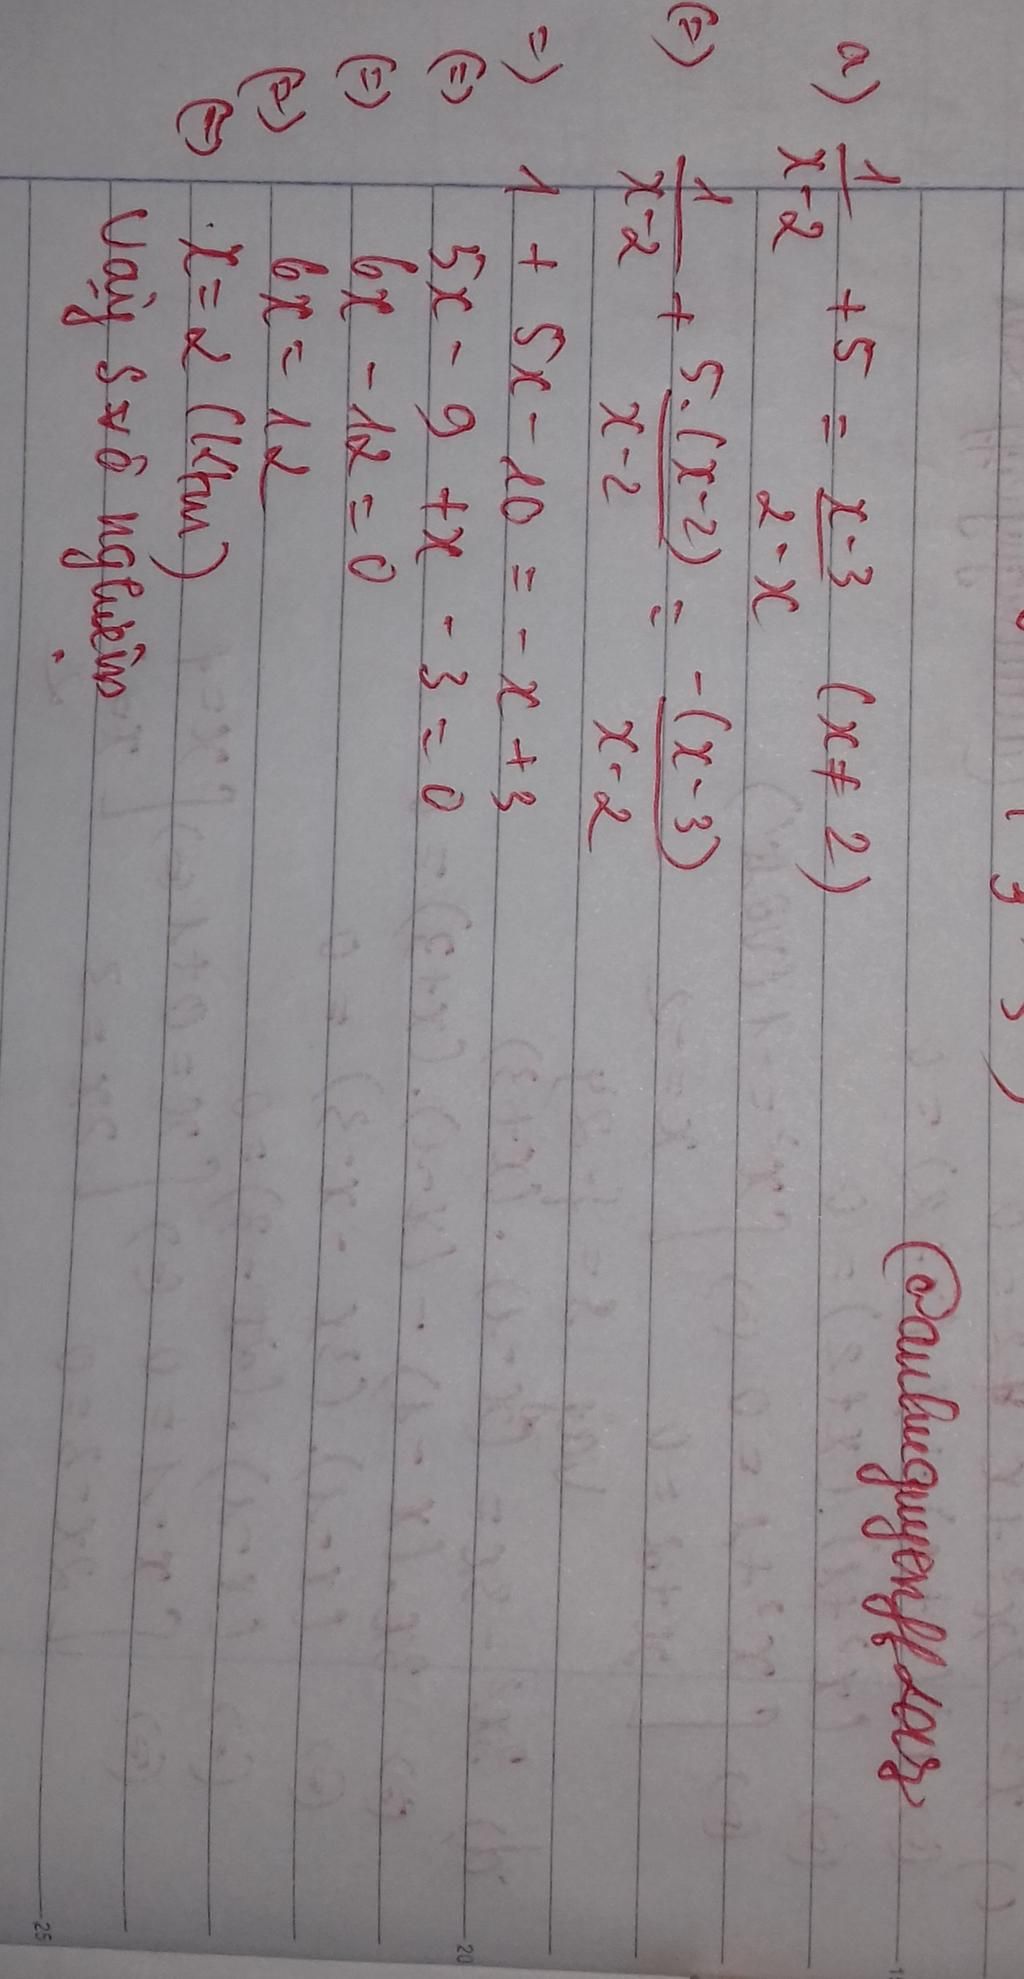 @danhnguyenff2013
a) 1/(x-2) + 5 = (x-3)/(2-x) (x ≠ 2)
(=) 1/(x-2) + 5.(x-2)/(x-2) = -(x-3)/(x-2)
=) 1 + 5x - 10 = -x + 3
(=) 5x - 9 + x - 3 = 0
(=) 6x - 12 = 0
(=) 6x = 12
(=) x = 2 (Ktm)
Vậy S vô nghiệm
20
25